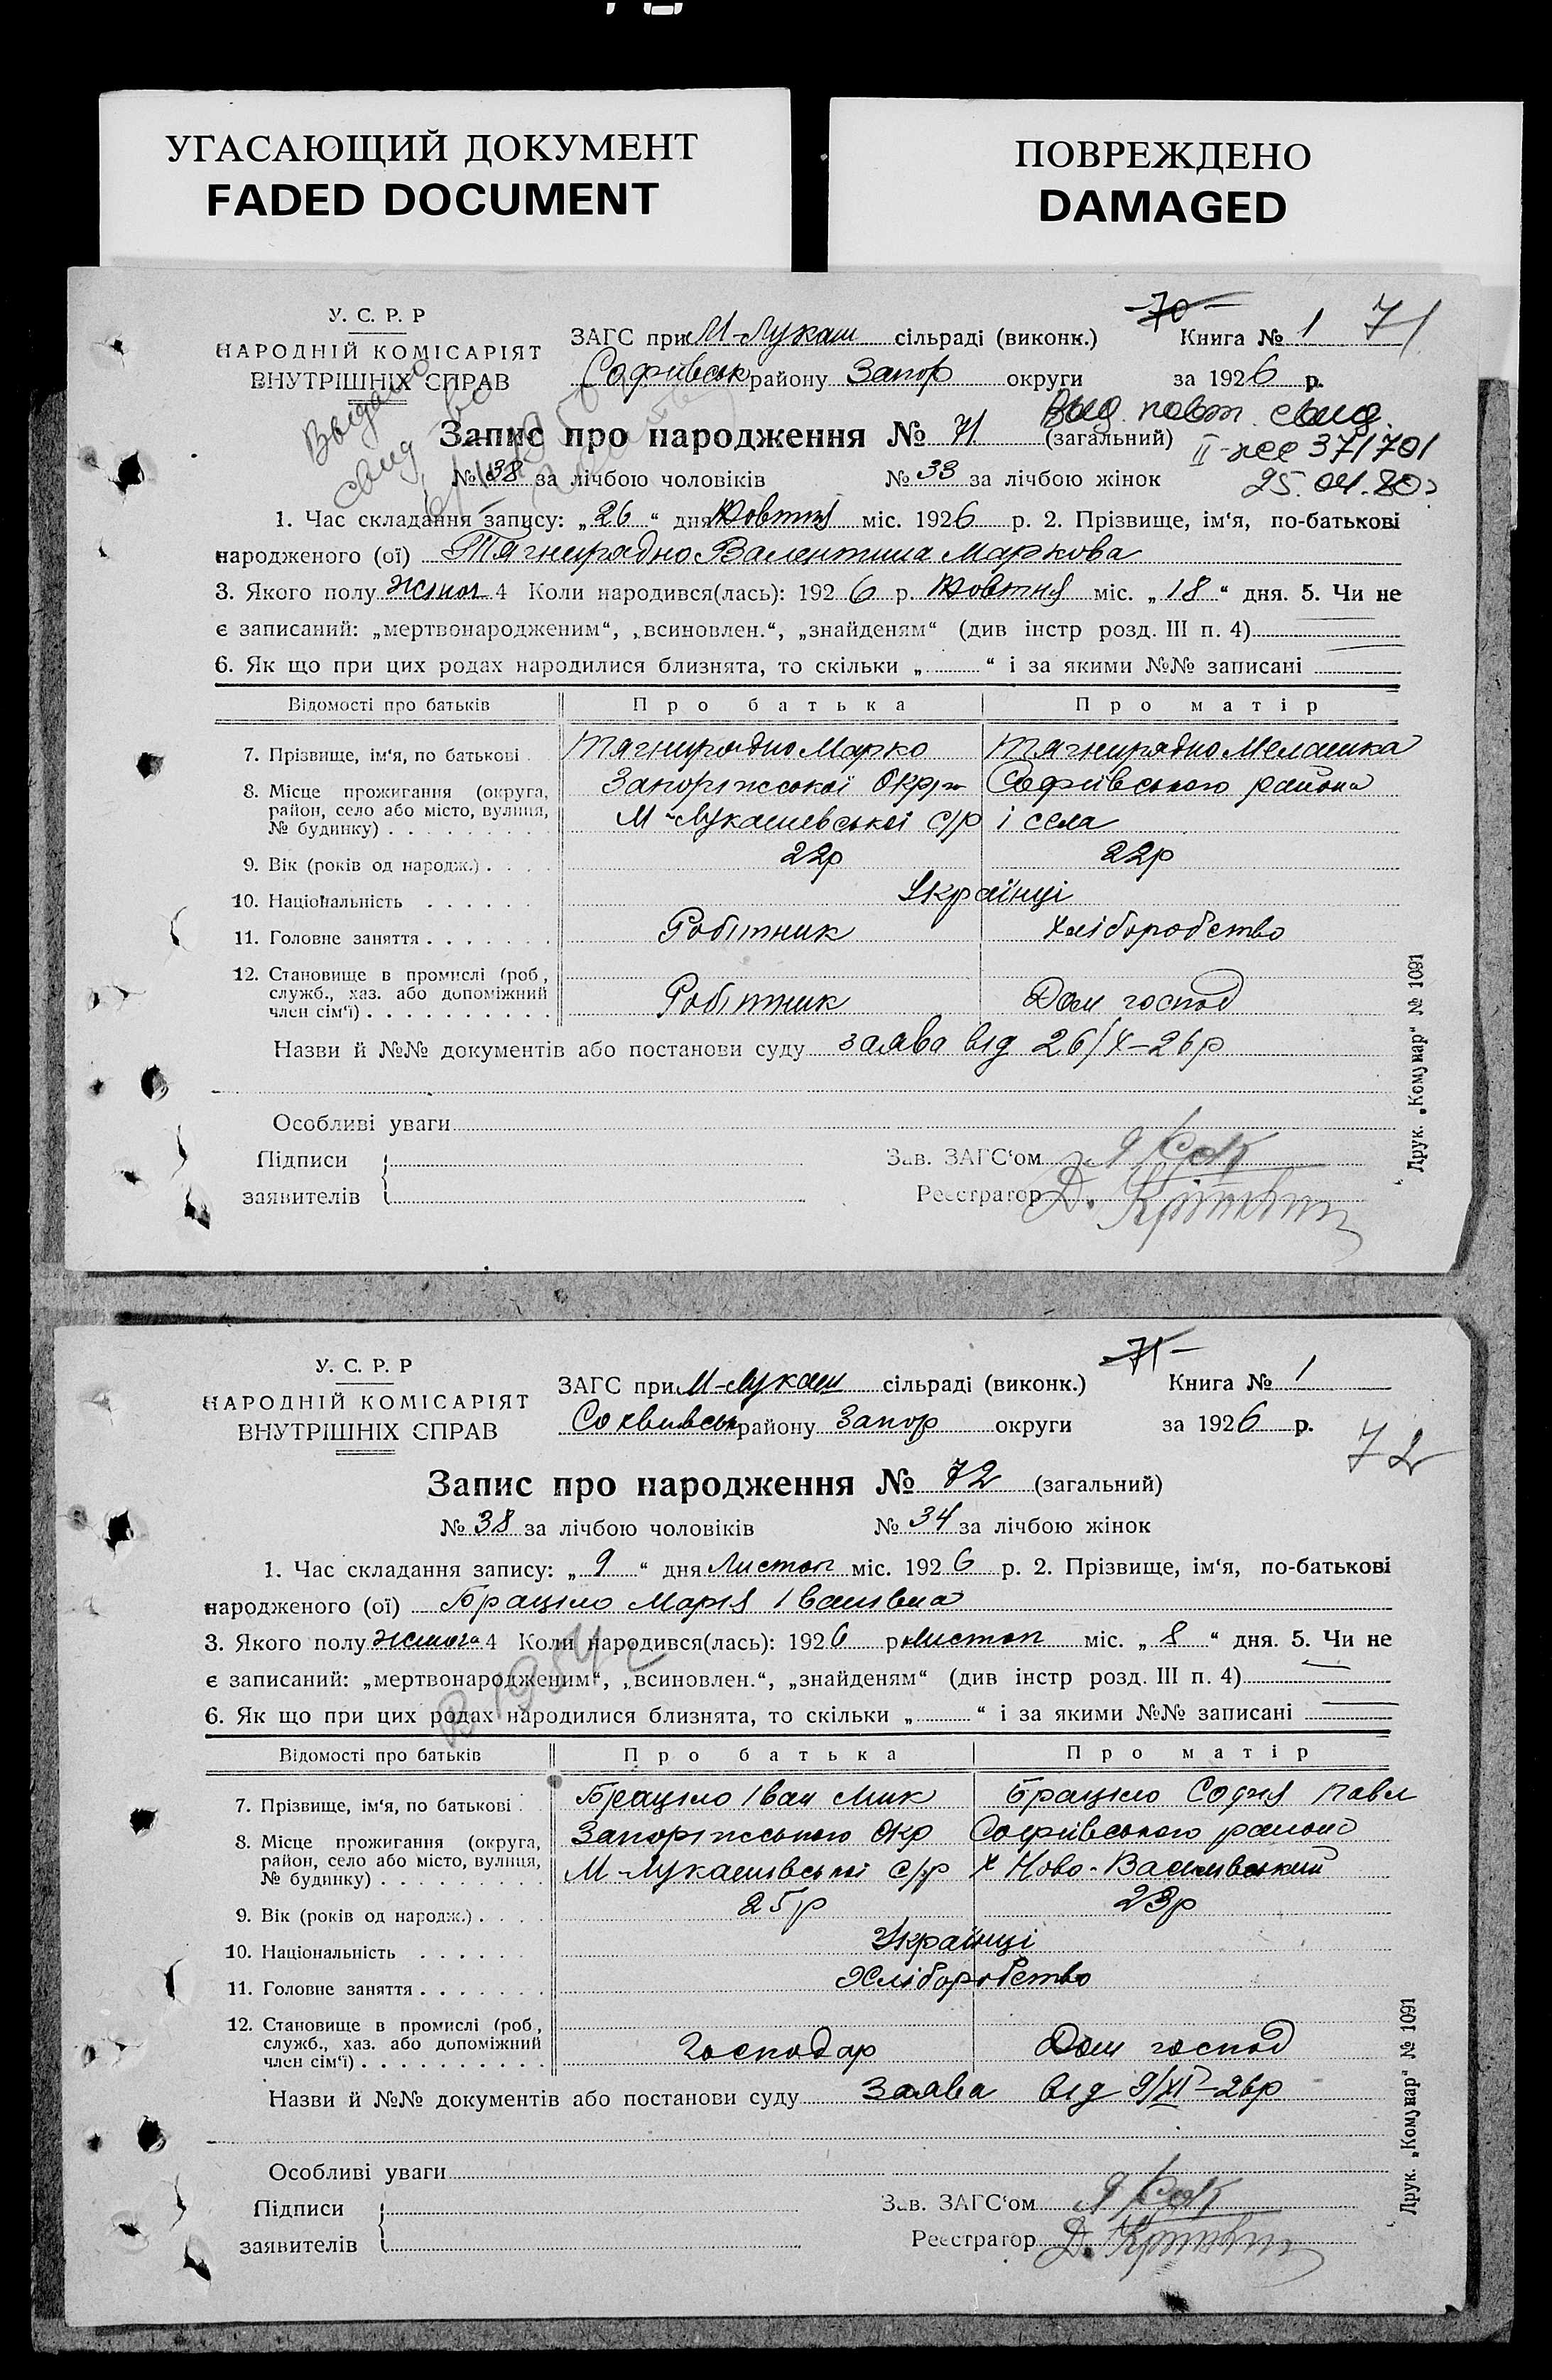 УГАСАЮЩИЙ ДОКУМЕНТ
FADED DOCUMENT
ПОВРЕЖДЕНО
DAMAGED
У. С. Р. Р
НАРОДНІЙ КОМІСАРІЯТ
ВНУТРІШНІХ СПРАВ
ЗАГС при М-Лукаш сільраді (виконк.)
70
Книга № 1
71
Софиївськ району Запор округи за 1926 р.
Выдано
свид во
Выд. повт. свид.
Запис про народження № 71 (загальний)
371701
№ 38 за лічбою чоловіків № 33 за лічбою жінок
25.04.80
1. Час складання запису: „26“ дня Жовтня міс. 1926 р. 2. Прізвище, ім‘я, по-батькові
народженого (ої) Тягнирядно Валентина Маркова
3. Якого полу жіноч 4 Коли народився(лась): 1926 р. Жовтня міс. „18“ дня. 5. Чи не
є записаний: „мертвонародженим“, „всиновлен.“, „знайденям“ (див інстр розд. III п. 4)
6. Як що при цих родах народилися близнята, то скільки „ “ і за якими №№ записані
Відомості про батьків Про батька Про матір
7. Прізвище, ім‘я, по батькові Тягнирядно Марко Тягнирядно Мелашка
8. Місце прожигання (округа, Запоріжської Окр Софиївського района
район, село або місто, вулиця, М-Лукашевської с/р і села
№ будинку)
9. Вік (років од народж.) 22р 22р
10. Національність Українці
11. Головне заняття Робітник Хліборобство
12. Становище в промислі (роб,
служб., хаз. або допоміжний Робітник Дом господ
член сім‘ї)
Назви й №№ документів або постанови суду заява від 26/X-26р
Особливі уваги
Підписи
заявителів
Зав. ЗАГС‘ом
Реєстратор Д.
Друк. „Комунар“ № 1091
У. С. Р. Р
НАРОДНІЙ КОМІСАРІЯТ
ВНУТРІШНІХ СПРАВ
ЗАГС при М-Лукаш сільраді (виконк.)
71
Книга № 1
Сохвивськ району Запор округи за 1926 р.
72
Запис про народження № 72 (загальний)
№ 38 за лічбою чоловіків № 34 за лічбою жінок
1. Час складання запису: „9“ дня Листоп міс. 1926 р. 2. Прізвище, ім‘я, по-батькові
народженого (ої) Браціло Марія Іванівна
3. Якого полу жіноча 4 Коли народився(лась): 1926 р Листоп міс. „8“ дня. 5. Чи не
є записаний: „мертвонародженим“, „всиновлен.“, „знайденям“ (див інстр розд. III п. 4)
В 1954
6. Як що при цих родах народилися близнята, то скільки „ “ і за якими №№ записані
Відомості про батьків Про батька Про матір
7. Прізвище, ім‘я, по батькові Браціло Іван Мик Браціло Софія Павл
8. Місце прожигання (округа, Запоріжського Окр Софиївського району
район, село або місто, вулиця, М-Лукашівської с/р х Ново-Василівський
№ будинку)
9. Вік (років од народж.) 25р 23р
10. Національність Українці
11. Головне заняття Хліборобство
12. Становище в промислі (роб,
служб., хаз. або допоміжний Господар Дом господ
член сім‘ї)
Назви й №№ документів або постанови суду Заява від 9/XI-26р
Особливі уваги
Підписи
заявителів
Зав. ЗАГС‘ом
Реєстратор Д.
Друк. „Комунар“ № 1091